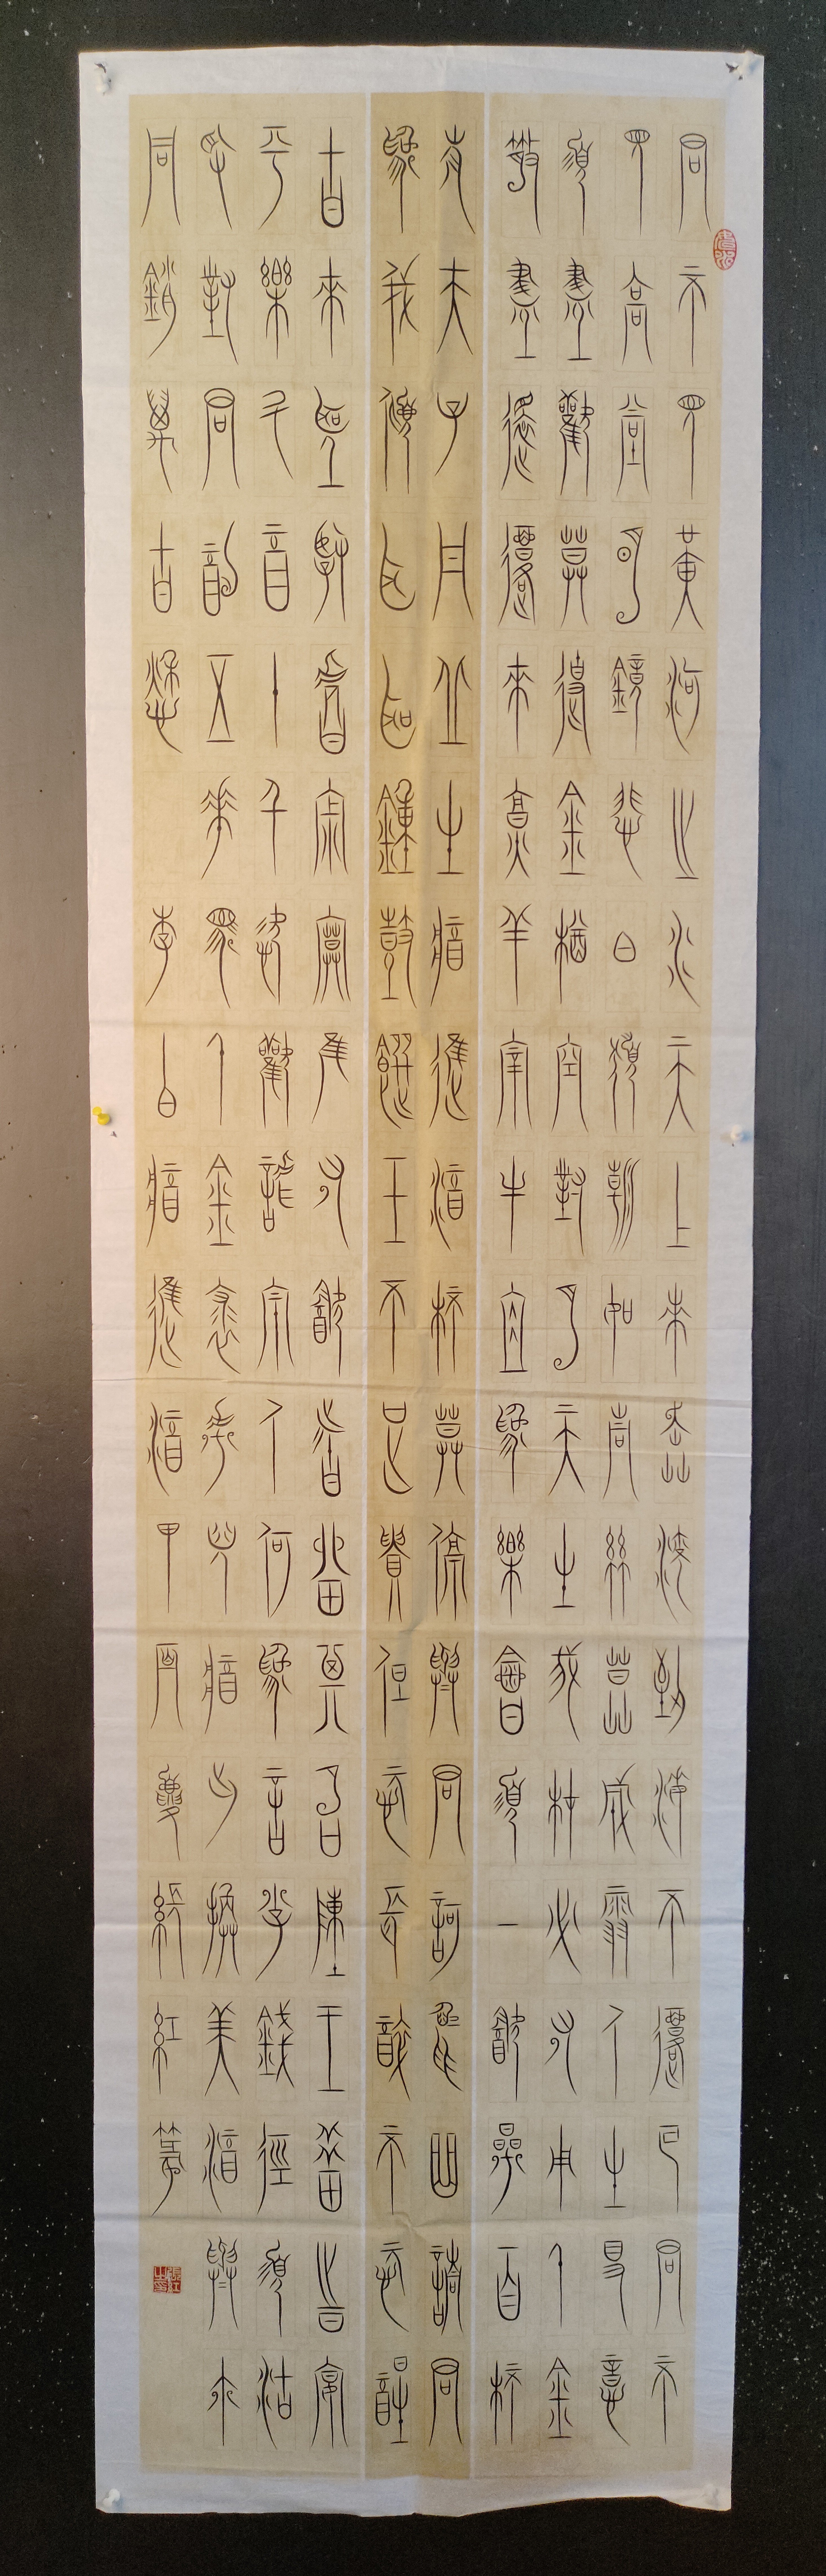 君不見黄河之水天上來奔流到海不復回君不
見高堂明鏡悲白髮朝如青絲暮成雪人生得意
須盡歡莫使金樽空對月天生我材必有用千金
散盡還復來烹羊宰牛且爲樂會須一飲三百杯
岑夫子丹丘生將進酒杯莫停與君歌一曲請君
爲我傾耳聽鐘鼓饌玉不足貴但願長醉不願醒
古來聖賢皆寂寞惟有飲者留其名陳王昔時宴
平樂斗酒十千恣歡謔主人何爲言少錢徑須沽
取對君酌五花馬千金裘呼兒將出換美酒與爾
同銷萬古愁 李白將進酒甲辰夏張紅篆